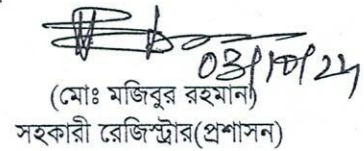 03/10/24
(মোঃ মজিবুর রহমান)
সহকারী রেজিস্ট্রার(প্রশাসন)